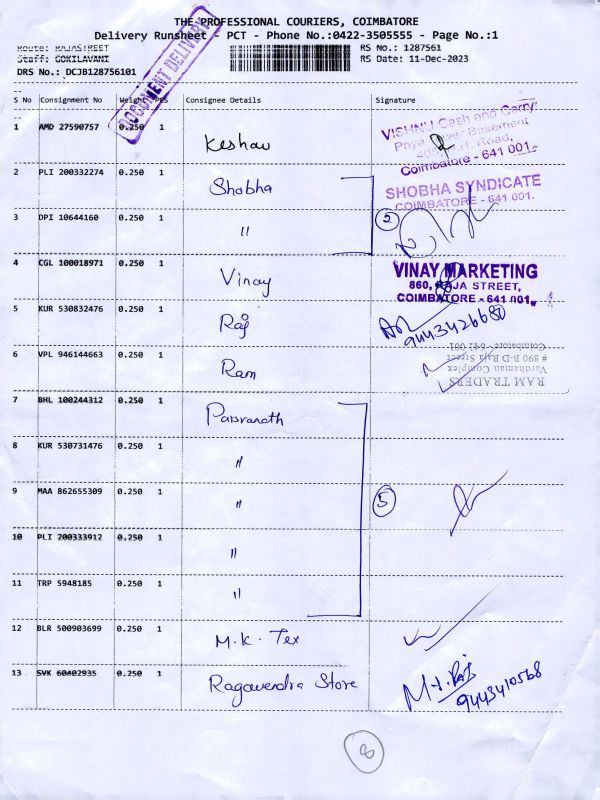 THE PROFESSIONAL COURIERS, COIMBATORE
Delivery Runsheet - PCT - Phone No.:0422-3505555 - Page No.:1
Route: RAJASTREET
RS No.: 1287561
Staff: GOKILAVANI
RS Date: 11-Dec-2023
DRS No.: DCJB128756101
DOCUMENT DELIVERY
S No Consignment No Weight PCS Consignee Details Signature
1 AMD 27590757 0.250 1 Keshav
VISHNU Cash and Carry
Basement
Road,
Coimbatore - 641 001.
2 PLI 200332274 0.250 1 Shobha
SHOBHA SYNDICATE
COIMBATORE - 641 001.
3 DPI 10644160 0.250 1 "
2
4 CGL 100018971 0.250 1 Vinay
VINAY MARKETING
860, RAJA STREET,
COIMBATORE - 641 001.
5 KUR 530832476 0.250 1 Raj
6 VPL 946144663 0.250 1 Ram
RAM TRADERS
Vardhaman Complex
# 890 B-D Raja Street
Coimbatore - 641 001
7 BHL 100244312 0.250 1 Parsvanath
8 KUR 530731476 0.250 1 "
9 MAA 862655309 0.250 1 "
5
10 PLI 200333912 0.250 1 "
11 TRP 5948185 0.250 1 "
12 BLR 500903699 0.250 1 M.K. Tex
13 SVK 60402935 0.250 1 Ragavendra Store
9443410568
8